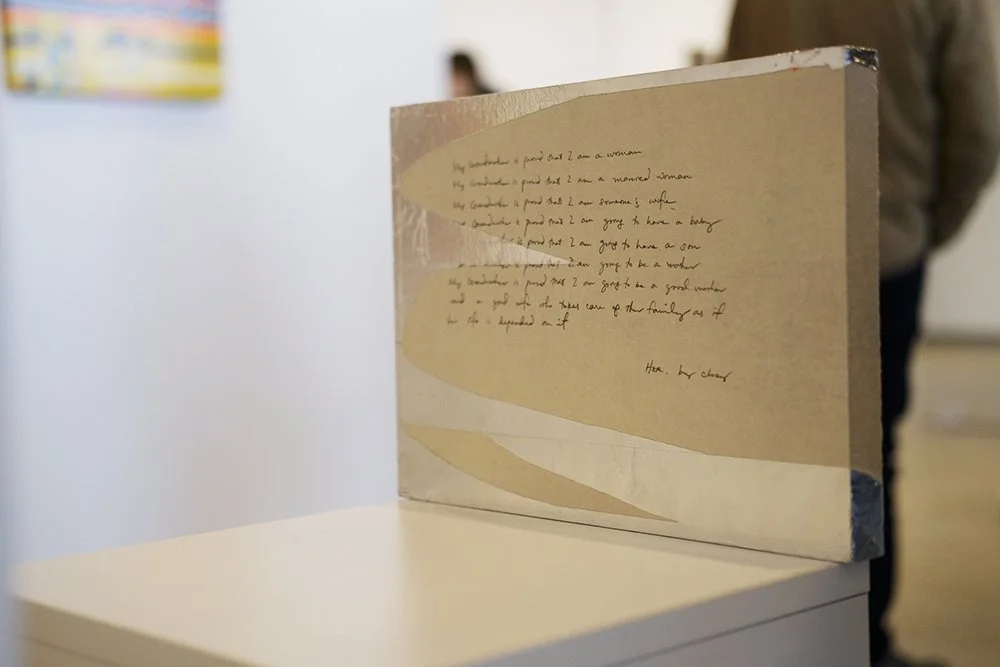 My Grandmother is proud that I am a woman
My Grandmother is proud that I am a married woman
My Grandmother is proud that I am someone's wife
My Grandmother is proud that I am going to have a baby
is proud that I am going to have a son
is proud that I am going to be a mother
My Grandmother is proud that I am going to be a good mother
and a good wife who takes care of the family as if
her life is depended on it